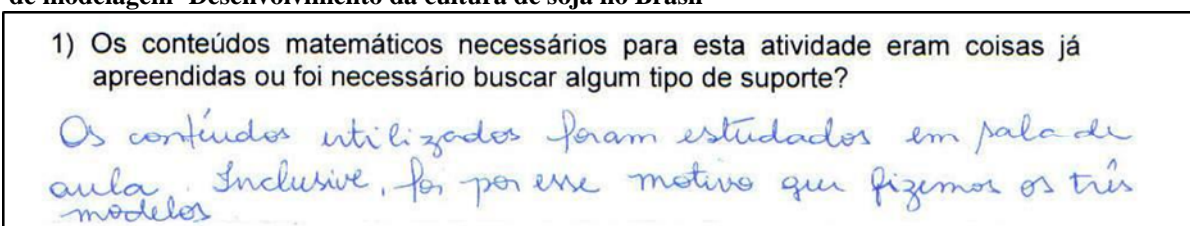 de modelagem "Desenvolvimento da cultura de soja no Brasil"
1) Os conteúdos matemáticos necessários para esta atividade eram coisas já
apreendidas ou foi necessário buscar algum tipo de suporte?
Os contéudos utilizados foram estudados em sala de
aula. Inclusive, foi por esse motivo que fizemos os três
modelos